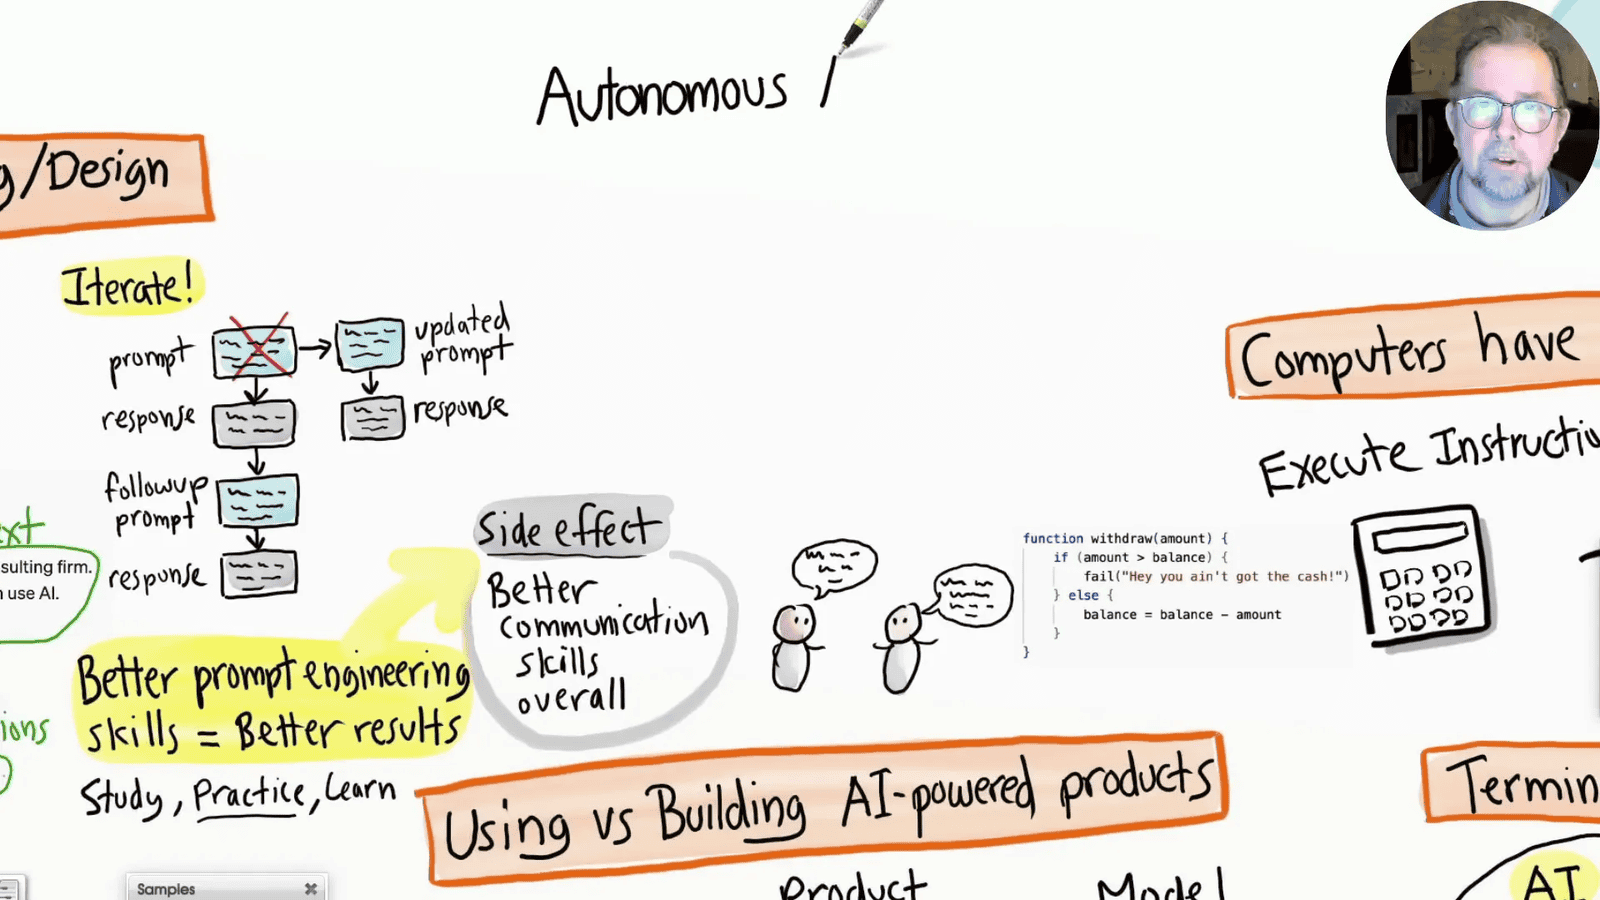 Autonomous
/Design
Iterate!
prompt
updated
prompt
response
response
followup
prompt
response
sulting firm.
use AI.
Better prompt engineering
skills = Better results
Study, Practice, Learn
Side effect
Better
communication
skills
overall
function withdraw(amount) {
if (amount > balance) {
fail("Hey you ain't got the cash!")
} else {
balance = balance - amount
}
}
Computers have
Execute Instructi
Using vs Building AI-powered products
Product
Model
Termin
AI
Samples